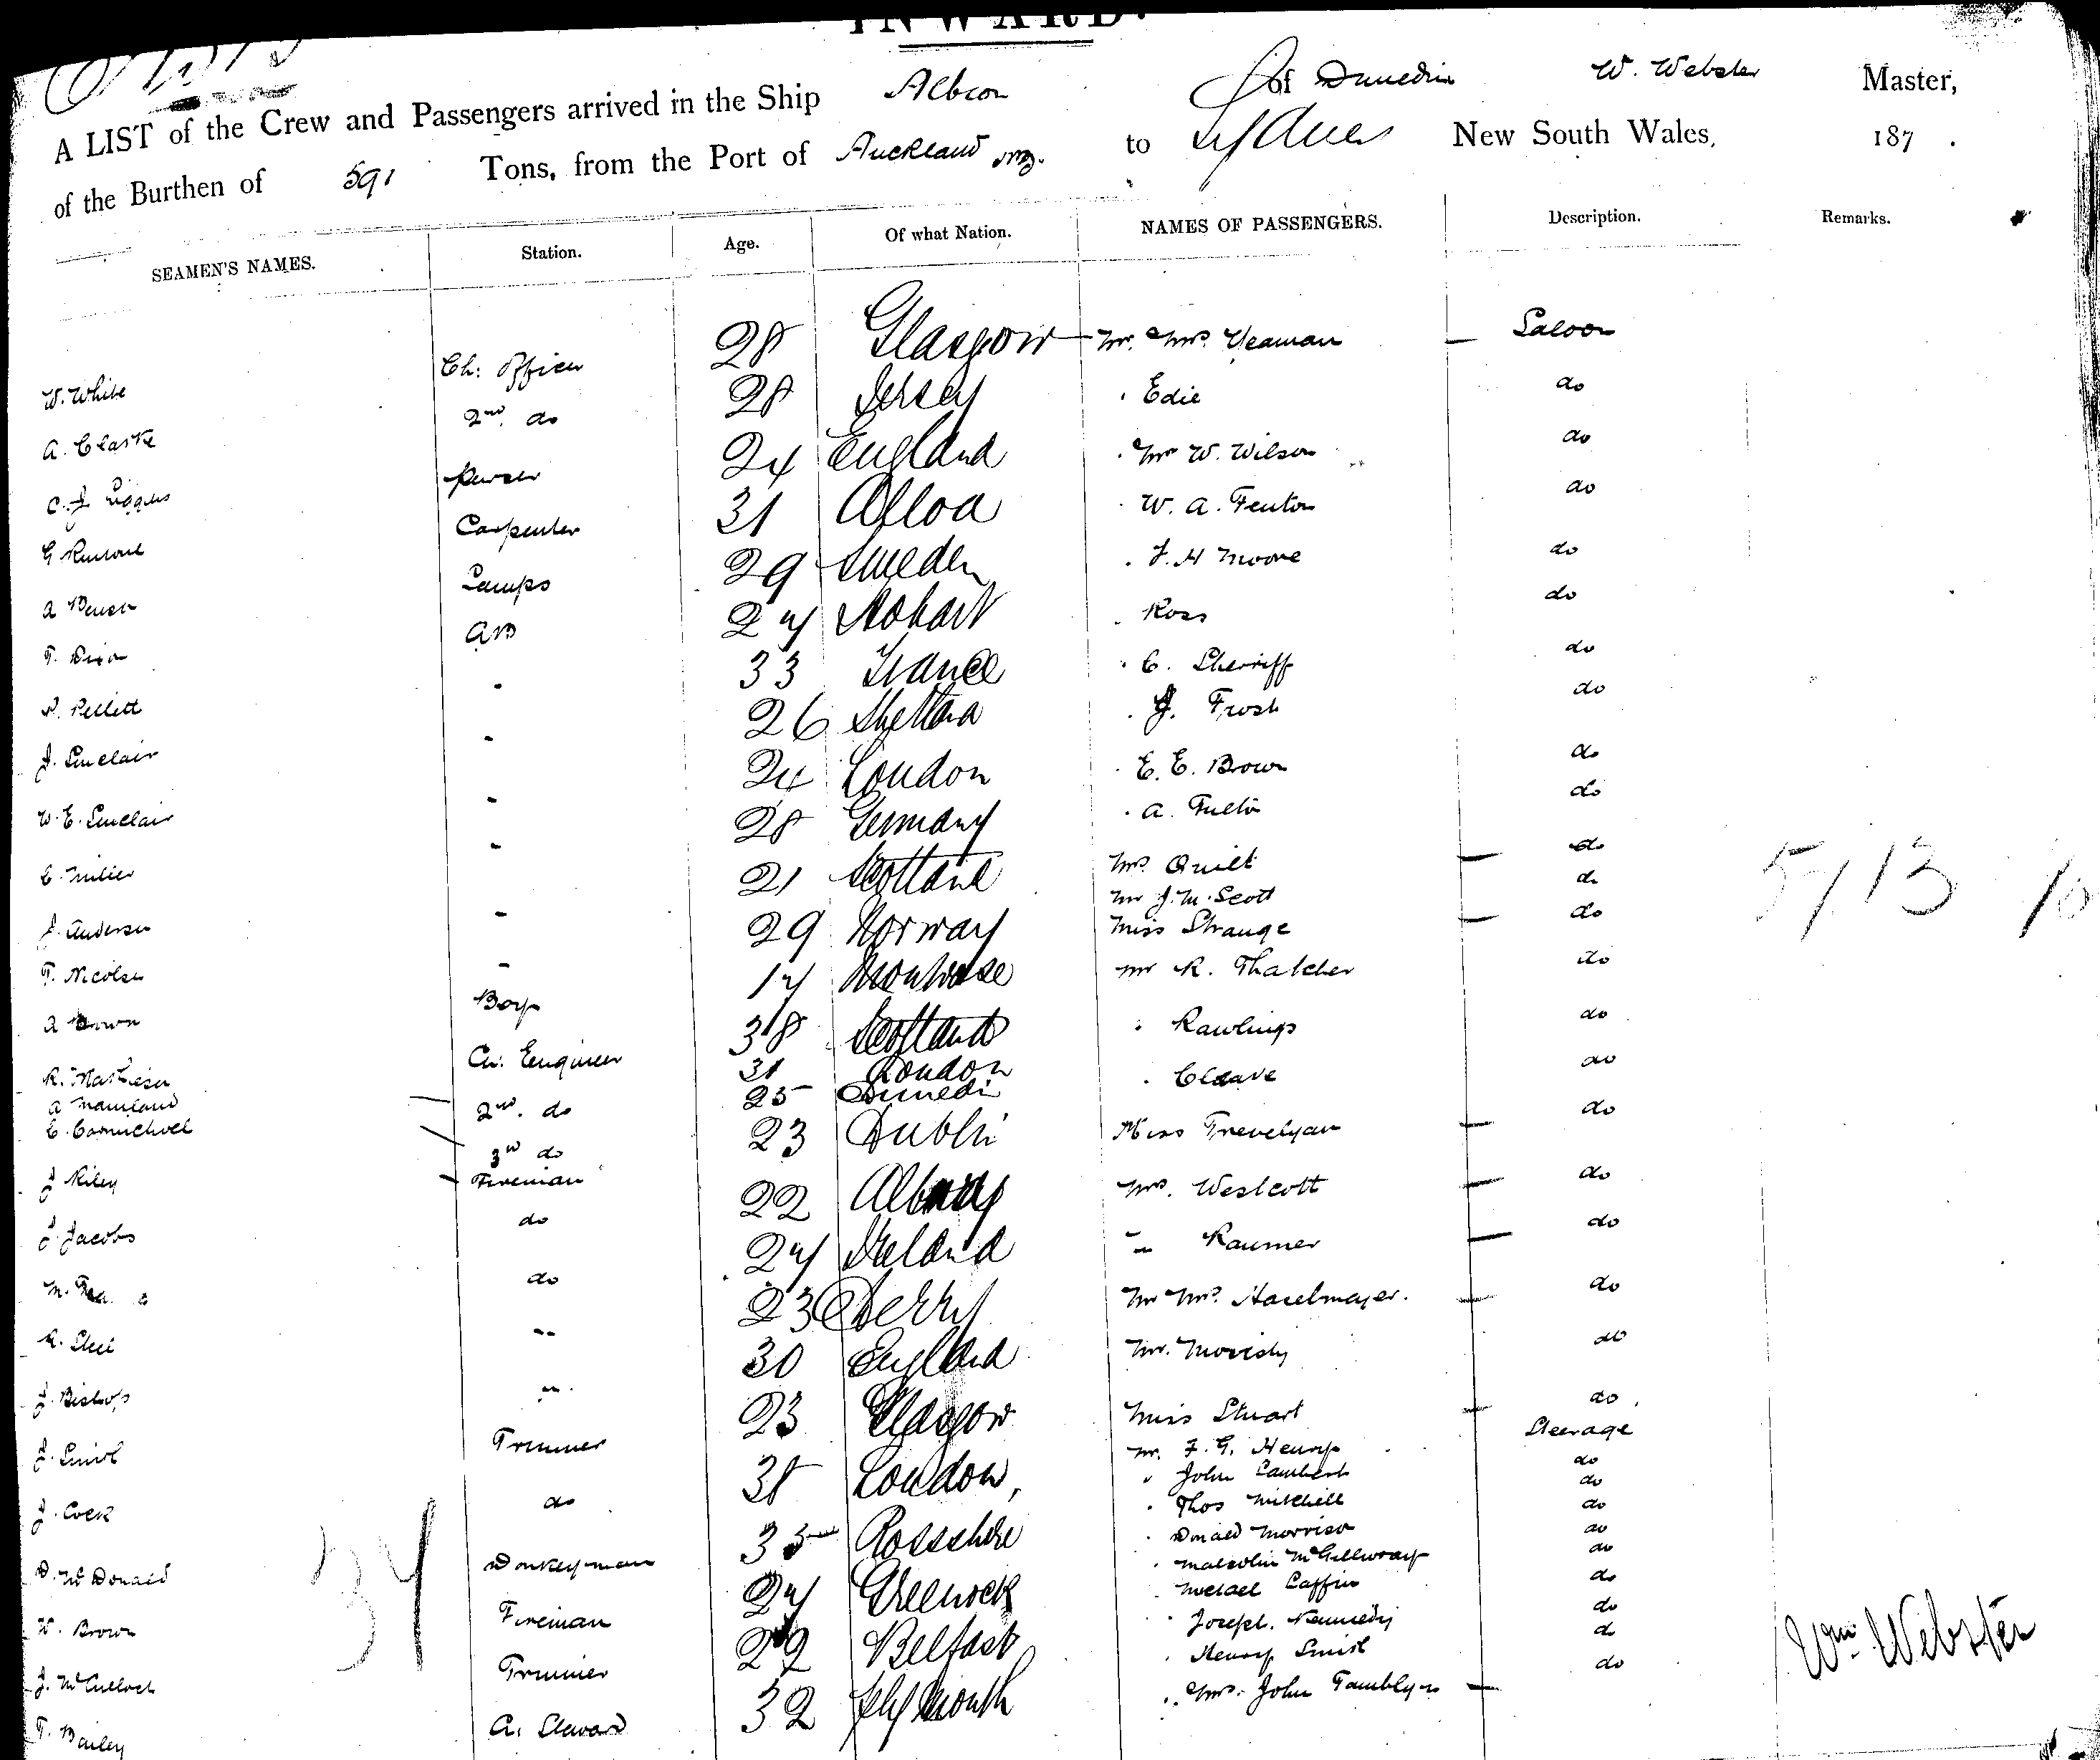 INWARD.
A LIST of the Crew and Passengers arrived in the Ship Albion of Dunedin W. Webster Master,
of the Burthen of 591 Tons, from the Port of Auckland NZ. to Sydney New South Wales, 187 .
SEAMEN'S NAMES. Station. Age. Of what Nation. NAMES OF PASSENGERS. Description. Remarks.
W. White Ch: Officer 28 Glasgow Mr. Mrs. Yeaman Saloon
A. Clarke 2nd. do 28 Jersey Edie do
C. J. Purser 24 England Mr W. Wilson do
G Carpenter 31 Alloa W. A. Fenton do
A Lamps 29 Sweden F. H Moore do
T. Dixon AB 24 Hobart Ross do
P. Pellett - 33 France C. Sherriff do
J. Sinclair - 26 J. Frost do
W. E. Sinclair - 24 London E. E. Brown do
C. - 28 Germany A. Fulton do
J. Anderson 21 Scotland Mrs. Quilt do
Mr J. M. Scott do
T. Nicolsen - 29 Norway Miss Strange do
A Brown - Boy 14 Montrose Mr R. Thatcher do
R. Mathieson Ch: Engineer 38 Scotland Rawlings do
A Mainland 2nd. do 31 London Cleave do
C. Carmichael 3rd do 25 Dunedin
J Riley Fireman 23 Dublin Miss Trevelyan do
J. Jacobs do 22 Albany Mrs. Westcott do
M. do 24 Ireland " Raumer do
R. Steel " 23 Derry Mr Mrs. Haselmayer. do
J. Bishop " 30 England Mr. do
J. Smith Trimmer 23 Glasgow Miss Stuart do
Mr. F. G. Henry Steerage
J. Cock do 38 London, John Lambert do
Thos Mitchell do
D. McDonald Donkeyman 35 Rossshire Donald Morrison do
Malcolm McGillivray do
W. Brown Fireman 24 Greenock Michael Laffin do
Joseph. Kennedy do
J. McCulloch Trimmer 22 Belfast Henry Smith do
T. Bailey Ch. Steward 32 Plymouth Mrs. John Tamblyn do
34
5/13 10
Wm. Webster